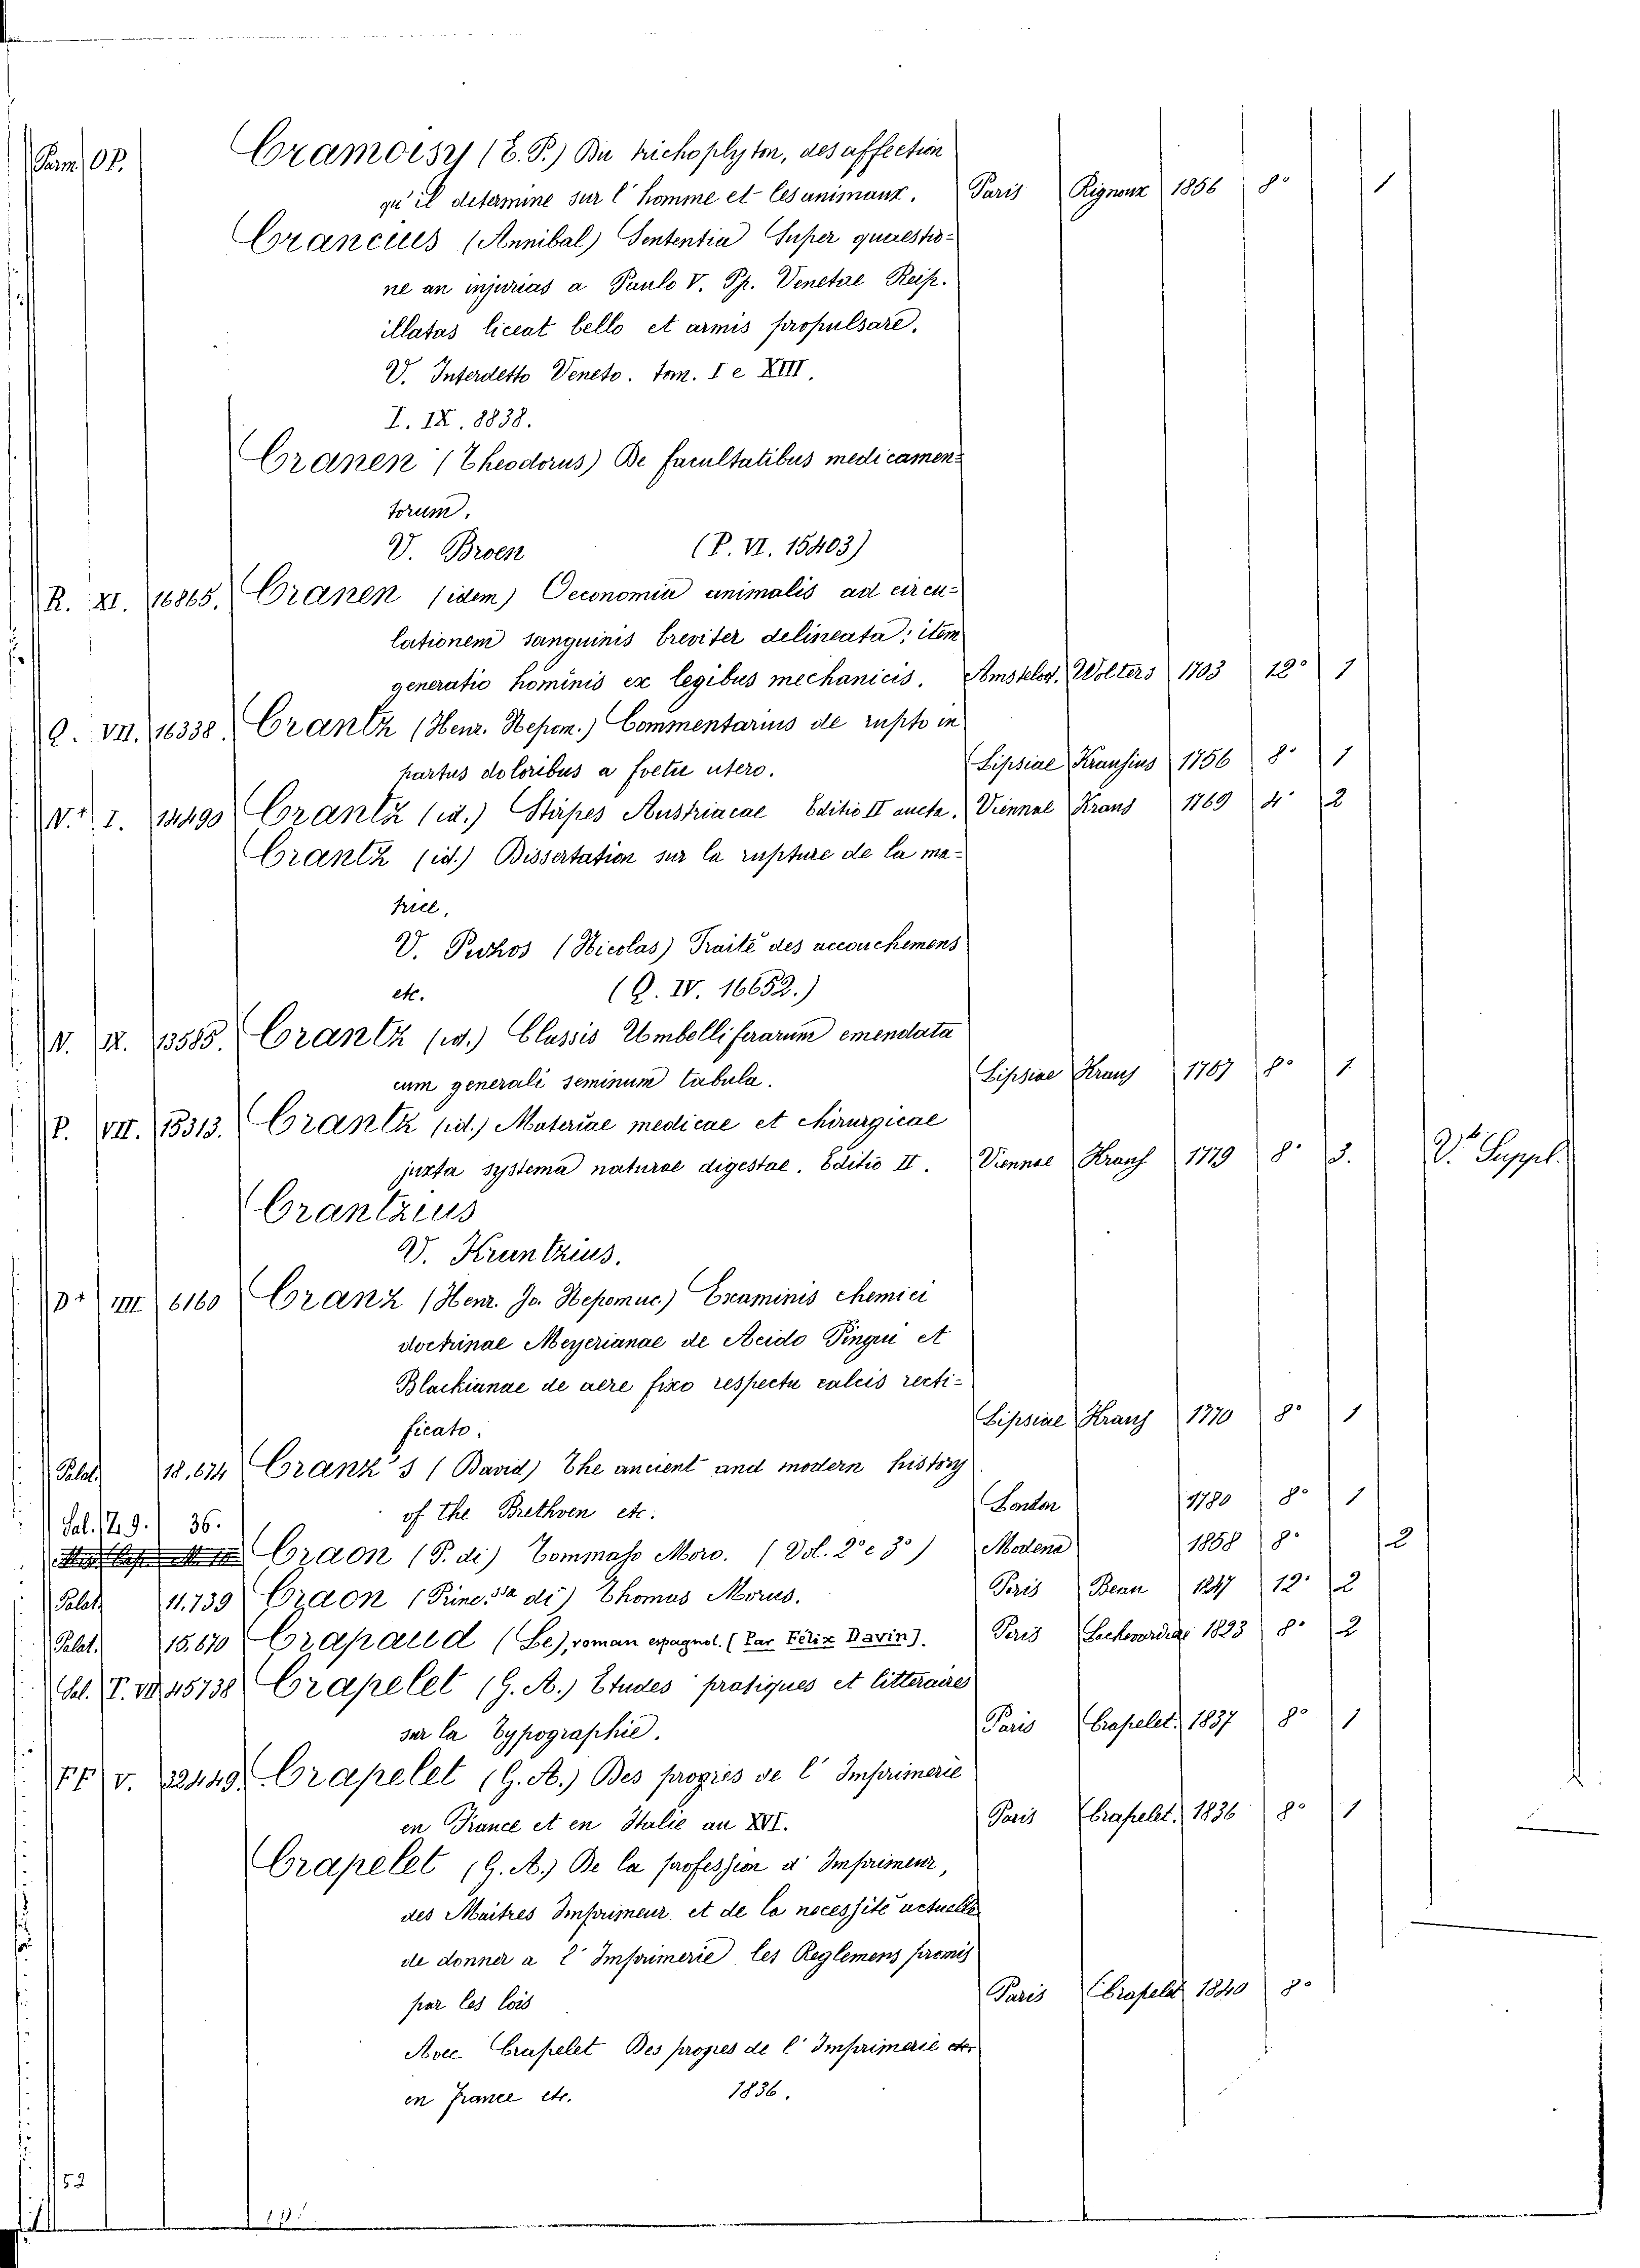 Pam. OP. Cramoisy (E. P.) Du trichoplyton, des affection
qu'il determine sur l'homme et les animaux. Paris Rignoux 1856 8° 1
Crancius (Annibal) Sententia Super quaestio-
ne an injurias a Paulo V. Pp. Venetae Reip.
illatas liceat bello et armis propulsare.
V. Interdetto Veneto. tom. I e XIII.
I. IX. 8838.
Cranen (Theodorus) De facultatibus medicamen-
torum.
V. Broen (P. VI. 15403)
R. XI. 16865. Cranen (idem) Oeconomia animalis ad circu-
lationem sanguinis breviter delineata; item
generatio hominis ex legibus mechanicis. Amstelod. Wolters 1703 12° 1
Q. VII. 16338. Crantz (Henr. Nepom.) Commentarius de rupto in
partus doloribus a foetu utero. Lipsiae Krausius 1756 8° 1
N.+ I. 14490 Crantz (id.) Stirpes Austriacae Editio II aucta. Viennae Kraus 1769 4° 2
Crantz (id.) Dissertation sur la rupture de la ma-
trice.
V. Puzhos (Nicolas) Traité des accouchemens
etc. (Q. IV. 16652.)
N. IX. 13585. Crantz (id.) Classis Umbelliferarum emendata
cum generali seminum tabula. Lipsiae Kraus 1767 8° 1.
P. VII. 15313. Crantz (id.) Materiae medicae et Chirurgicae
juxta systema naturae digestae. Editio II. Viennae Kraus 1779 8° 3. V. Suppl.
Crantzius
V. Krantzius.
D+ VIII 6160 Cranz (Henr. Jo. Nepomuc.) Examinis chemici
doctrinae Meyerianae de Acido Pingui et
Blackianae de aere fixo respectu calcis recti-
ficato. Lipsiae Kraus 1770 8° 1
Palat. 18.674 Cranz's (David) The ancient and modern history
of the Brethven etc. London 1780 8° 1
Sal. 36. Craon (P. di) Tommaso Moro. (Vol. 2° e 3°) Modena 1858 8° 2
Palat. 11.739 Craon (Princ.ssa di) Thomas Morus. Paris Beau 1847 12° 2
Palat. 15.670 Crapaud (Le), roman espagnol. (Par Félix Davin). Paris 8° 2
Sal. T. VII 45738 Crapelet (G. A.) Etudes pratiques et litteraires
sur la Typographie. Paris Crapelet. 1837 8° 1
FF V. 22449. Crapelet (G. A.) Des progrès de l'Imprimerie
en France et en Italie au XVI. Paris Crapelet. 1836 8° 1
Crapelet (G. A.) De la profession d'Imprimeur,
des Maitres Imprimeur et de la necessité actuelle
de donner a l'Imprimerie les Reglemens promis
par les lois Paris Crapelet 1840 8°
Avec Crapelet Des progres de l'Imprimerie
en france etc. 1836.
52